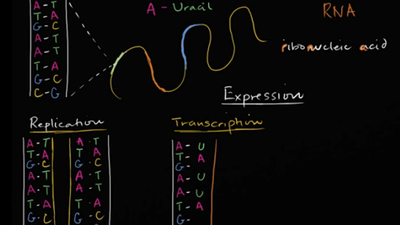 A - Uracil
RNA
ribonucleic acid
A - T
T - A
G - C
A - T
A - T
T - A
G - C
C - G
Expression
Replication
A - T
T - A
G - C
A - T
A - T
T - A
G - C
A - T
T - A
G - C
A - T
A - T
T - A
G - C
Transcription
A - U
T - A
G -
A - U
A - U
T - A
G -